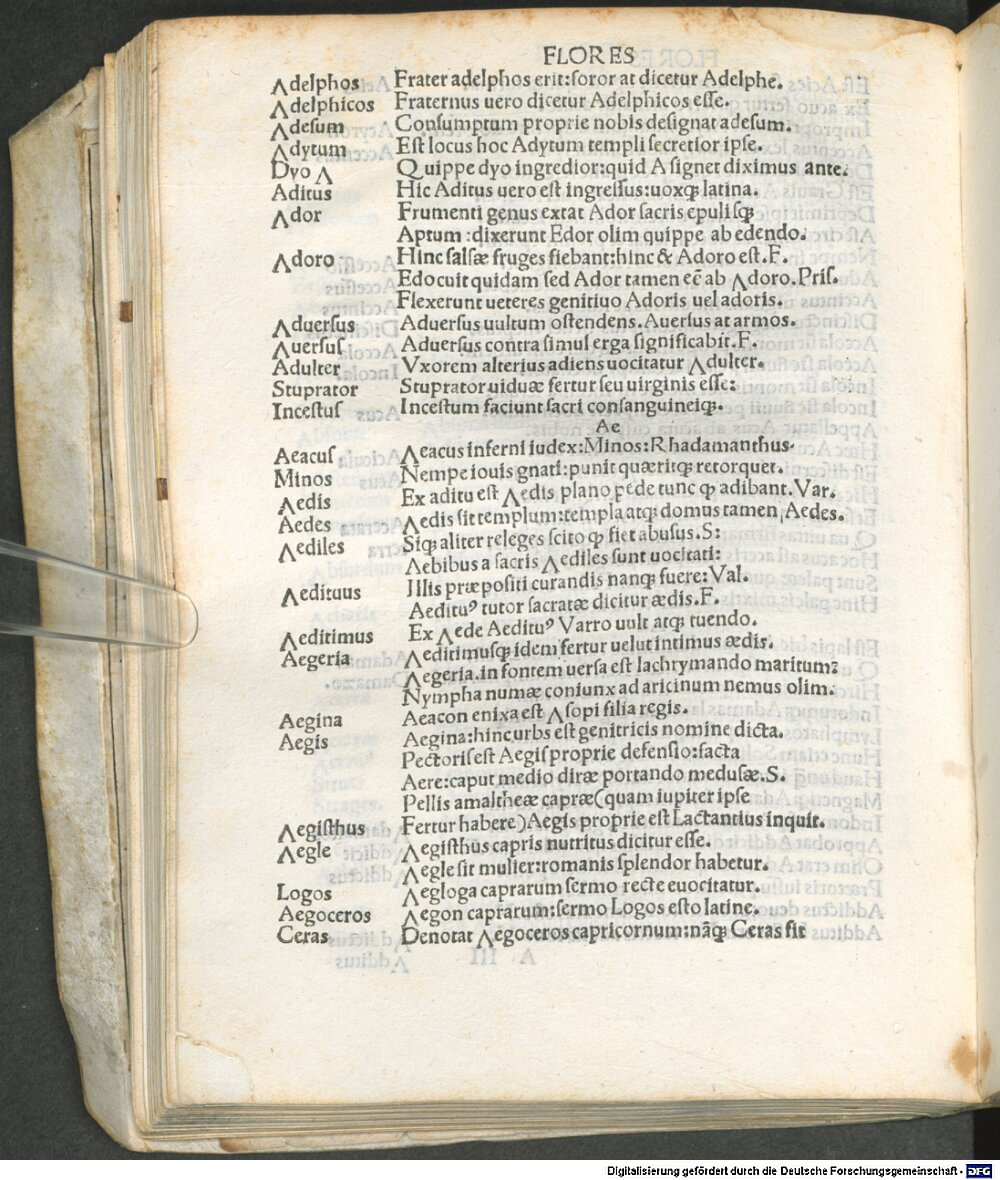 FLORES
Adelphos Frater adelphos erit:soror at dicetur Adelphe.
Adelphicos Fraternus uero dicetur Adelphicos esse.
Adesum Consumptum proprie nobis designat adesum.
Adytum Est locus hoc Adytum templi secretior ipse.
Dyo A Quippe dyo ingredior:quid A signet diximus ante.
Aditus Hic Aditus uero est ingressus:uoxqȝ latina.
Ador Frumenti genus extat Ador sacris epulisqȝ
Aptum:dixerunt Edor olim quippe ab edendo.
Adoro Hinc salsæ fruges fiebant:hinc & Adoro est.F.
Edocuit quidam sed Ador tamen eē ab Adoro.Pris.
Flexerunt ueteres genitiuo Adoris uel adoris.
Aduersus Aduersus uultum ostendens.Auersus at armos.
Auersus Aduersus contra simul erga significabit.F.
Adulter Vxorem alterius adiens uocitatur Adulter.
Stuprator Stuprator uiduæ fertur seu uirginis esse:
Incestus Incestum faciunt sacri consanguineiqȝ.
Ae
Aeacus Aeacus inferni iudex:Minos:Rhadamanthus.
Minos Nempe iouis gnati:punit quæritqȝ retorquet.
Aedis Ex aditu est Aedis plano pede tunc ꝙ adibant.Var.
Aedes Aedis sit templum:templa atqȝ domus tamen Aedes.
Aediles Siqȝ aliter releges scito ꝙ fiet abusus.S:
Aebibus a sacris Aediles sunt uocitati:
Aedituus Illis præpositi curandis nanqȝ fuere:Val.
Aedituꝰ tutor sacratæ dicitur ædis.F.
Ex Aede Aedituꝰ Varro uult atqȝ tuendo.
Aeditimus Aeditimusqȝ idem fertur uelut intimus ædis.
Aegeria Aegeria.in fontem uersa est lachrymando maritum:
Nympha numæ coniunx ad aricinum nemus olim.
Aegina Aeacon enixa est Asopi filia regis.
Aegis Aegina:hinc urbs est genitricis nomine dicta.
Pectoris est Aegis proprie defensio:facta
Aere:caput medio diræ portando medusæ.S.
Pellis amaltheæ capræ(quam iupiter ipse
Aegisthus Fertur habere)Aegis proprie est Lactantius inquit.
Aegle Aegisthus capris nutritus dicitur esse.
Aegle sit mulier:romanis splendor habetur.
Logos Aegloga caprarum sermo recte euocitatur.
Aegoceros Aegon caprarum:sermo Logos esto latine.
Ceras Denotat Aegoceros capricornum:nāqȝ Ceras sit
Digitalisierung gefördert durch die Deutsche Forschungsgemeinschaft - DFG